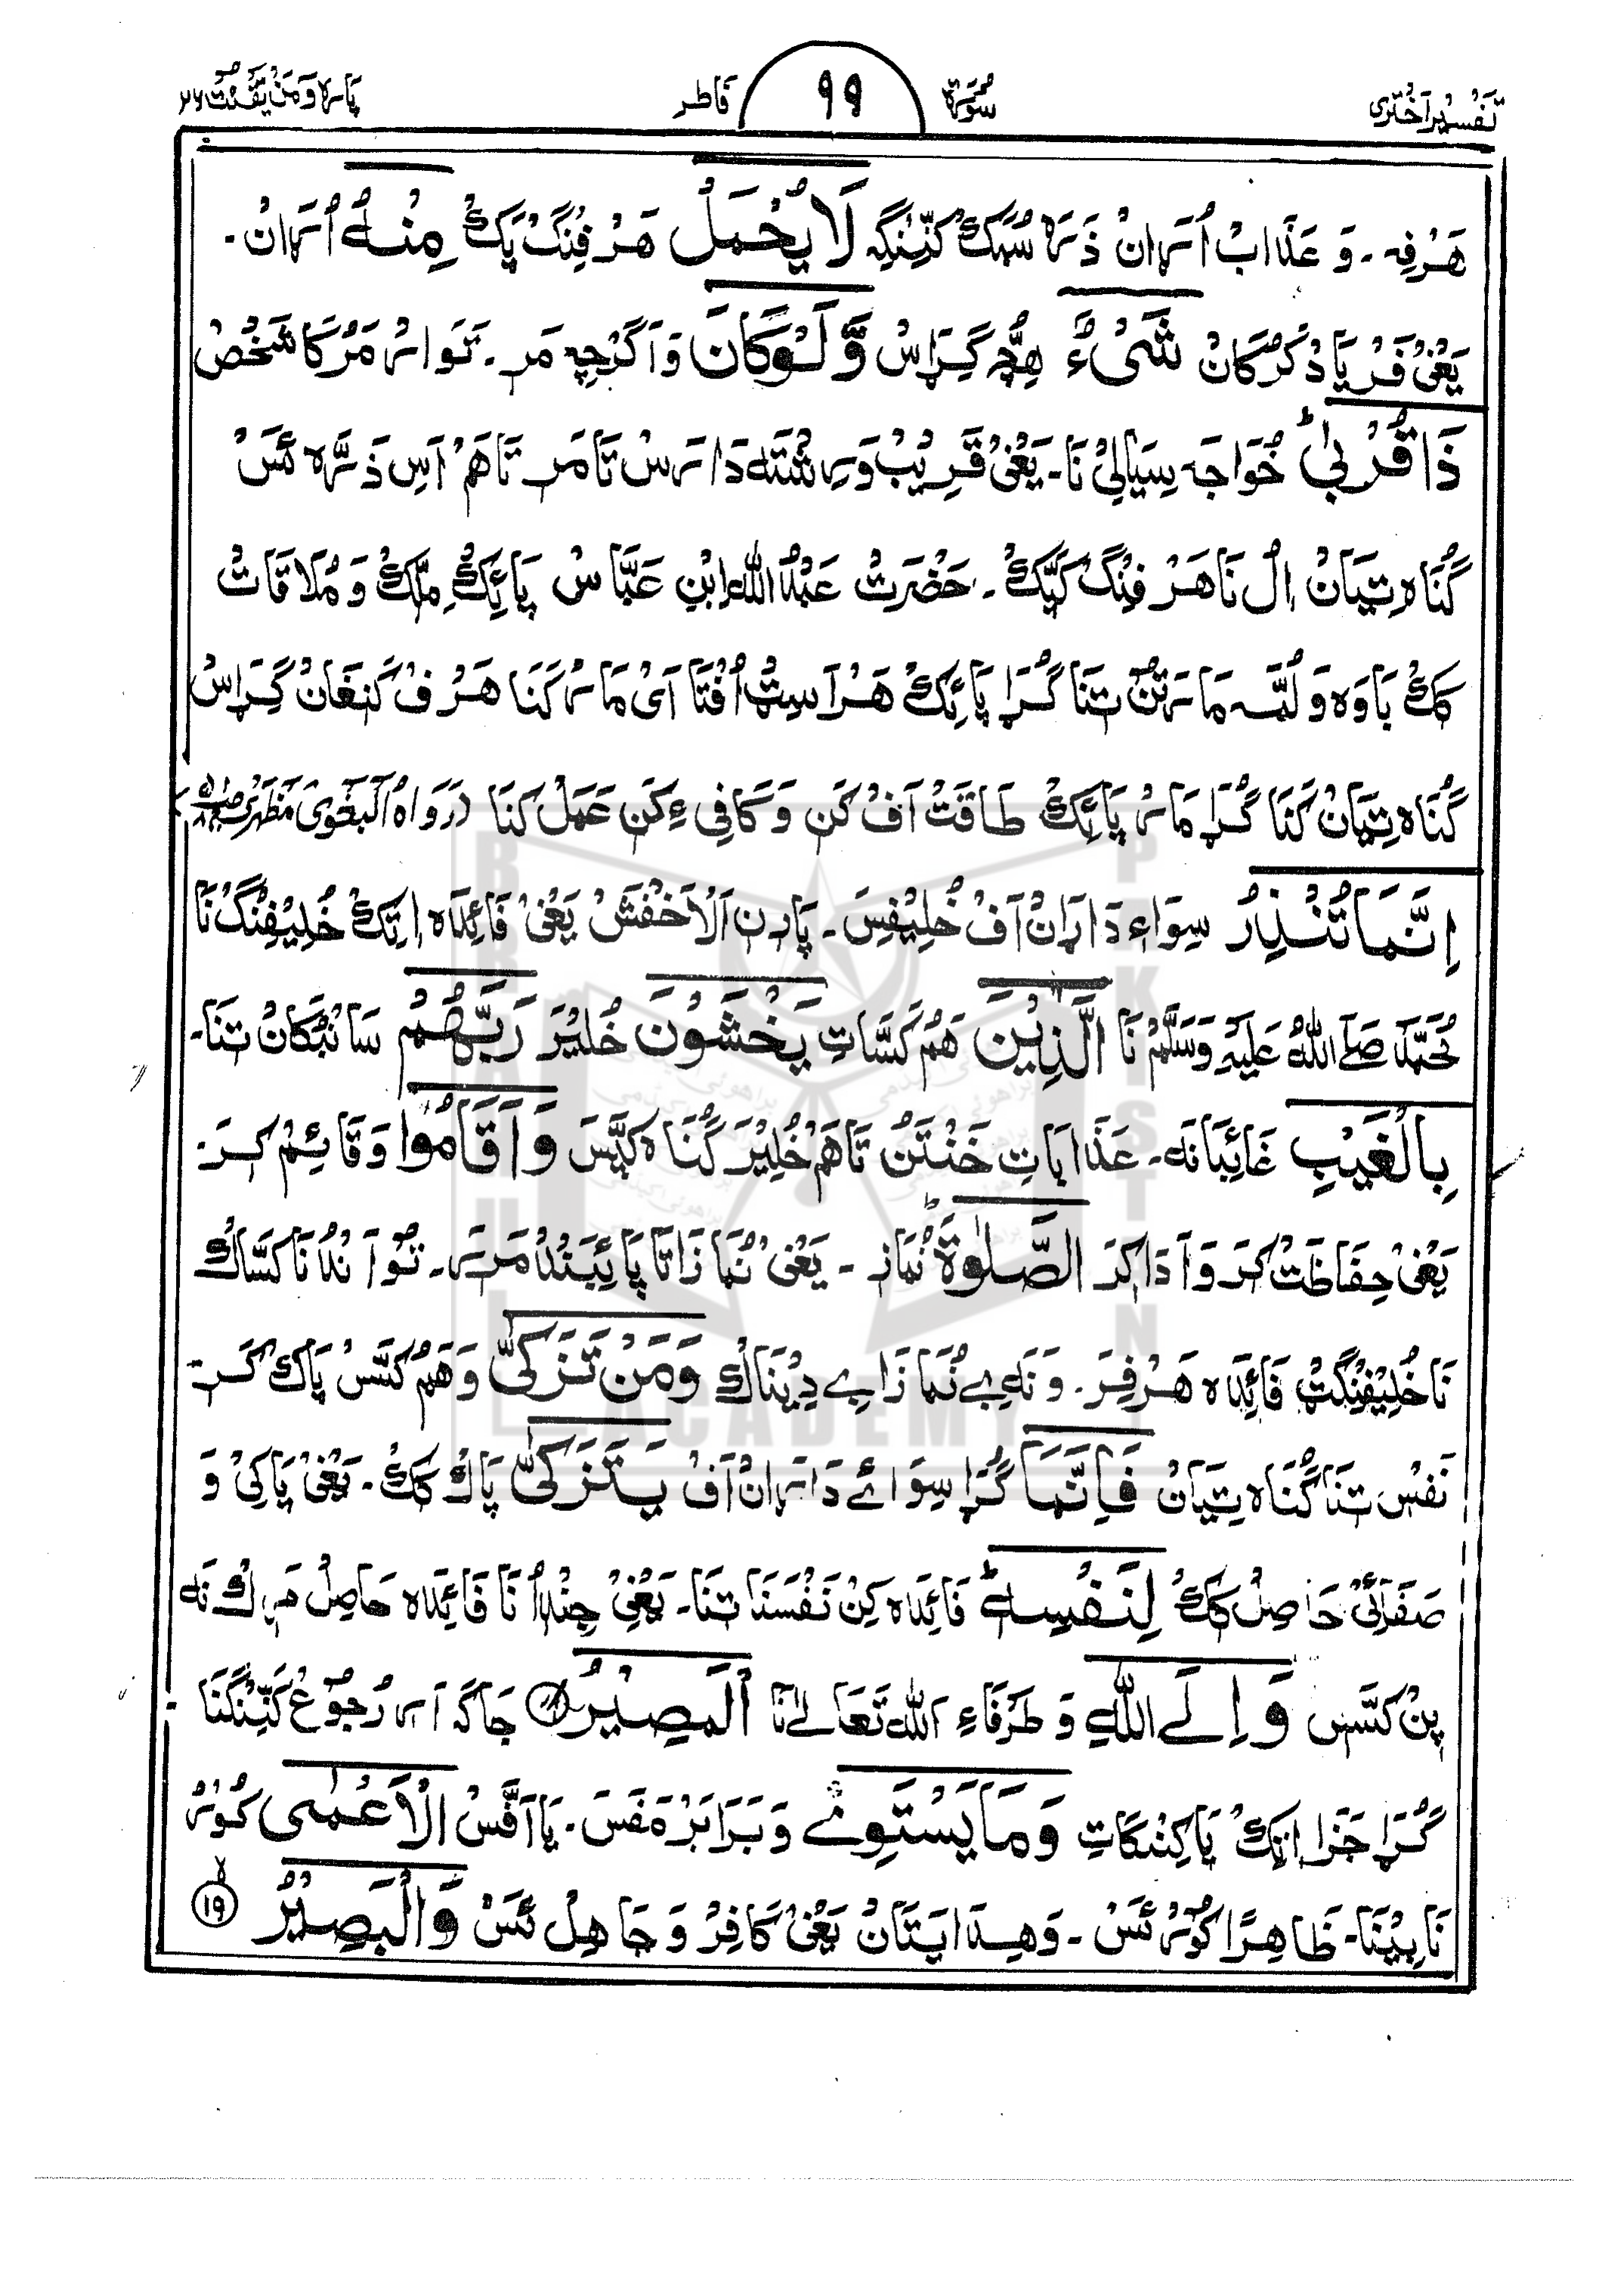 تَفْسِيْرِ اَخْتَرِى سُوْرَةُ ٩٩ فَاطِر پَارَه وَمَنْ يَّقْنُتْ ٢٢
هَرْفِہ ۔ وَ عَذَابْ اُرَانْ ذَرَہ سُبُکْ کَنِّنِگِہ لَا يُحْمَلْ هَرْفِنْگ پَکْ مِنْهُ اُرَانْ ۔
يَعْنِىْ فَرْيَادْ کَرُکَانْ شَىْءٌ هِچّ گِڑَاسْ وَّلَوْکَانَ وَ اَگَرْچِہ مَرِ ۔ تَوَارْ مَرُکَا شَخْصْ
ذَا قُرْبىٰ ط خُوَاجَہ سِيَالِىْ نَا ۔ يَعْنِىْ قَرِيْبْ وَ رِشْتَہ دَارَسْ تَا مَرِ تَاهَمْ اَسِ ذَرَّہ ئَسْ
گُنَاہ تِيَانْ اِلْ نَا هَرْفِنْگ کَپَّکْ ۔ حَضْرَتْ عَبْدُ اللّٰه اِبْنِ عَبَّاسْ پَائِکْ مِلِّکْ وَ مُلَاقَاتْ
کِکْ بَاوَہ وَ لُمَّہ مَارَتَنْ تِنَا گُڑَا پَائِکْ هَرْ اَسِٹْ اُفْتَا اَىْ مَارْ کَنَا هَرْفْ کَنِغَانْ گِڑَاسْ
گُنَاہ تِيَانْ کَنَا گُڑَا مَارْ پَائِکْ طَاقَتْ اَفْ کَنِ وَ کَافِى ءِ کَنِ عَمَلْ کَنَا (رَوَاهُ الْبَغَوِى مَظْهَرِى
اِنَّمَا تُنْذِرُ سِوَاءِ دَاڑَانْ اَفْ خُلِيْفِسَ ۔ پَارِنِ اَلْاَخْفَشْ يَعْنِىْ فَائِدَہ اِتِکْ خُلِيْفِنْگ نَا
مُحَمَّد صَلَّى اللّٰهُ عَلَيْهِ وَسَلَّمْ نَا الَّذِيْنَ هَمْ کَسَّاتِ يَخْشَوْنَ خُلِيْرَ رَبَّهُمْ سَائِبُکَانْ تِنَا ۔
بِالْغَيْبِ غَائِبَانَہ ۔ عَذَابَاتِ خَنْتَنُ تَاهَمْ خُلِيْرَ گُنَاہ کَپَّسَ وَاَقَامُوا وَ قَائِمْ کِرَ ۔
يَعْنِىْ حِفَاظَتْ کِرَ وَ اَدَا کِرَ الصَّلٰوةَ ط نُمَازِ ۔ يَعْنِىْ نُمَازَاتَا پَائِبَنْدْ مَرِرَ ۔ تَوْ اَنْدُنَا کَسَّاکْ
نَا خُلِيْفِنْگَٹْ فَائِدَہ هَرْفِرَ ۔ وَ نَہ بِے نُمَازَا بِے دِيْنَاکْ وَمَنْ تَزَکّٰى وَ هَمْ کَسَّسْ پَاکْ کَرِ
نَفْسِ تِنَا گُنَاہ تِيَانْ فَاِنَّمَا گُڑَا سِوَائے دَارَانْ اَفْ يَتَزَکّٰى پَاکْ کِکْ ۔ يَعْنِىْ پَاکِىْ وَ
صَفَائِىْ حَاصِلْ کِکْ لِنَفْسِهٖ ط فَائِدَہ کِنْ نَفْسَنَا تِنَا ۔ يَعْنِىْ جِنْدُ اُنَا فَائِدَہ حَاصِلْ مَرِکْ نَہ
پِنْ کَسَّسِ وَ اِلَى اللّٰهِ وَ طَرْفَاءِ اَللّٰه تَعَالىٰ نَا الْمَصِيْرُ ۱۸ جَاگَہ اَرِ رُجُوْعْ کَنِّنْگَنَا
گُڑَا جَزَا اِتِکْ پَاکِنُکَاتِ وَمَا يَسْتَوِى وَ بَرَابَرْ مَفَسَ ۔ يَا اَفَّسْ الْاَعْمٰى کُوْرْ
نَابِيْنَا ۔ ظَاهِرًا کُوْرْ ئَسْ ۔ وَ هِدَايَتَانْ يَعْنِىْ کَافِرْ وَ جَاهِلْ ئَسْ وَالْبَصِيْرُ ۱۹ لا